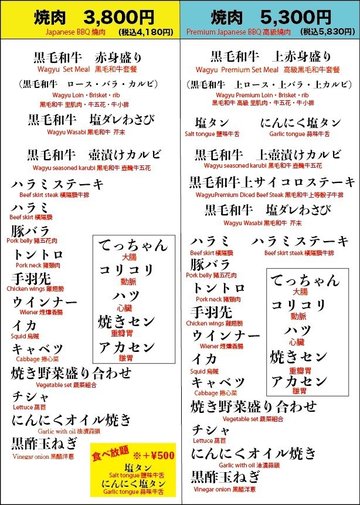 焼肉 3,800円
Japanese BBQ 燒肉 (税込4,180円)
黒毛和牛 赤身盛り
Wagyu Set Meal 黑毛和牛套餐
(黒毛和牛 ロース・バラ・カルビ)
Wagyu Loin・Brisket・rib
黒毛和牛 里肌肉・牛五花・牛小排
黒毛和牛 塩ダレわさび
Wagyu Wasabi 黑毛和牛 芥末
黒毛和牛 壺漬けカルビ
Wagyu seasoned karubi 黑毛和牛 壺醃牛五花
ハラミステーキ
Beef skirt steak 橫隔膜牛排
ハラミ
Beef skirt 橫隔膜
豚バラ
Pork belly 豬五花肉
トントロ
Pork neck 豬頸肉
手羽先
Chicken wings 雞翅膀
ウインナー
Wiener 煙燻香腸
イカ
Squid 烏賊
キャベツ
Cabbage 捲心菜
焼き野菜盛り合わせ
Vegetable set 蔬菜組合
チシャ
Lettuce 萵苣
にんにくオイル焼き
Garlic with oil 油漬蒜頭
黒酢玉ねぎ
Vinegar onion 黑醋洋蔥
てっちゃん
大腸
コリコリ
動脈
ハツ
心臟
焼きセン
重瓣胃
アカセン
皺胃
食べ放題 ※+¥500
塩タン
Salt tongue 鹽味牛舌
にんにく塩タン
Garlic tongue 蒜味牛舌
焼肉 5,300円
Premium Japanese BBQ 高級燒肉 (税込5,830円)
黒毛和牛 上赤身盛り
Wagyu Premium Set Meal 高級黑毛和牛套餐
(黒毛和牛 上ロース・上バラ・上カルビ)
Wagyu Premium Loin・Brisket・rib
黑毛和牛 高級 里肌肉・牛五花・牛小排
塩タン
Salt tongue 鹽味牛舌
にんにく塩タン
Garlic tongue 蒜味牛舌
黒毛和牛 上壺漬けカルビ
Wagyu seasoned karubi 黑毛和牛 壺醃牛五花
黒毛和牛上サイコロステーキ
WagyuPremium Diced Beef Steak 黑毛和牛上等骰子牛排
黒毛和牛 塩ダレわさび
Wagyu Wasabi 黑毛和牛 芥末
ハラミ
Beef skirt 橫隔膜
ハラミステーキ
Beef skirt steak 橫隔膜牛排
豚バラ
Pork belly 豬五花肉
トントロ
Pork neck 豬頸肉
手羽先
Chicken wings 雞翅膀
ウインナー
Wiener 煙燻香腸
イカ
Squid 烏賊
キャベツ
Cabbage 捲心菜
焼き野菜盛り合わせ
Vegetable set 蔬菜組合
チシャ
Lettuce 萵苣
にんにくオイル焼き
Garlic with oil 油漬蒜頭
黒酢玉ねぎ
Vinegar onion 黑醋洋蔥
てっちゃん
大腸
コリコリ
動脈
ハツ
心臟
焼きセン
重瓣胃
アカセン
皺胃